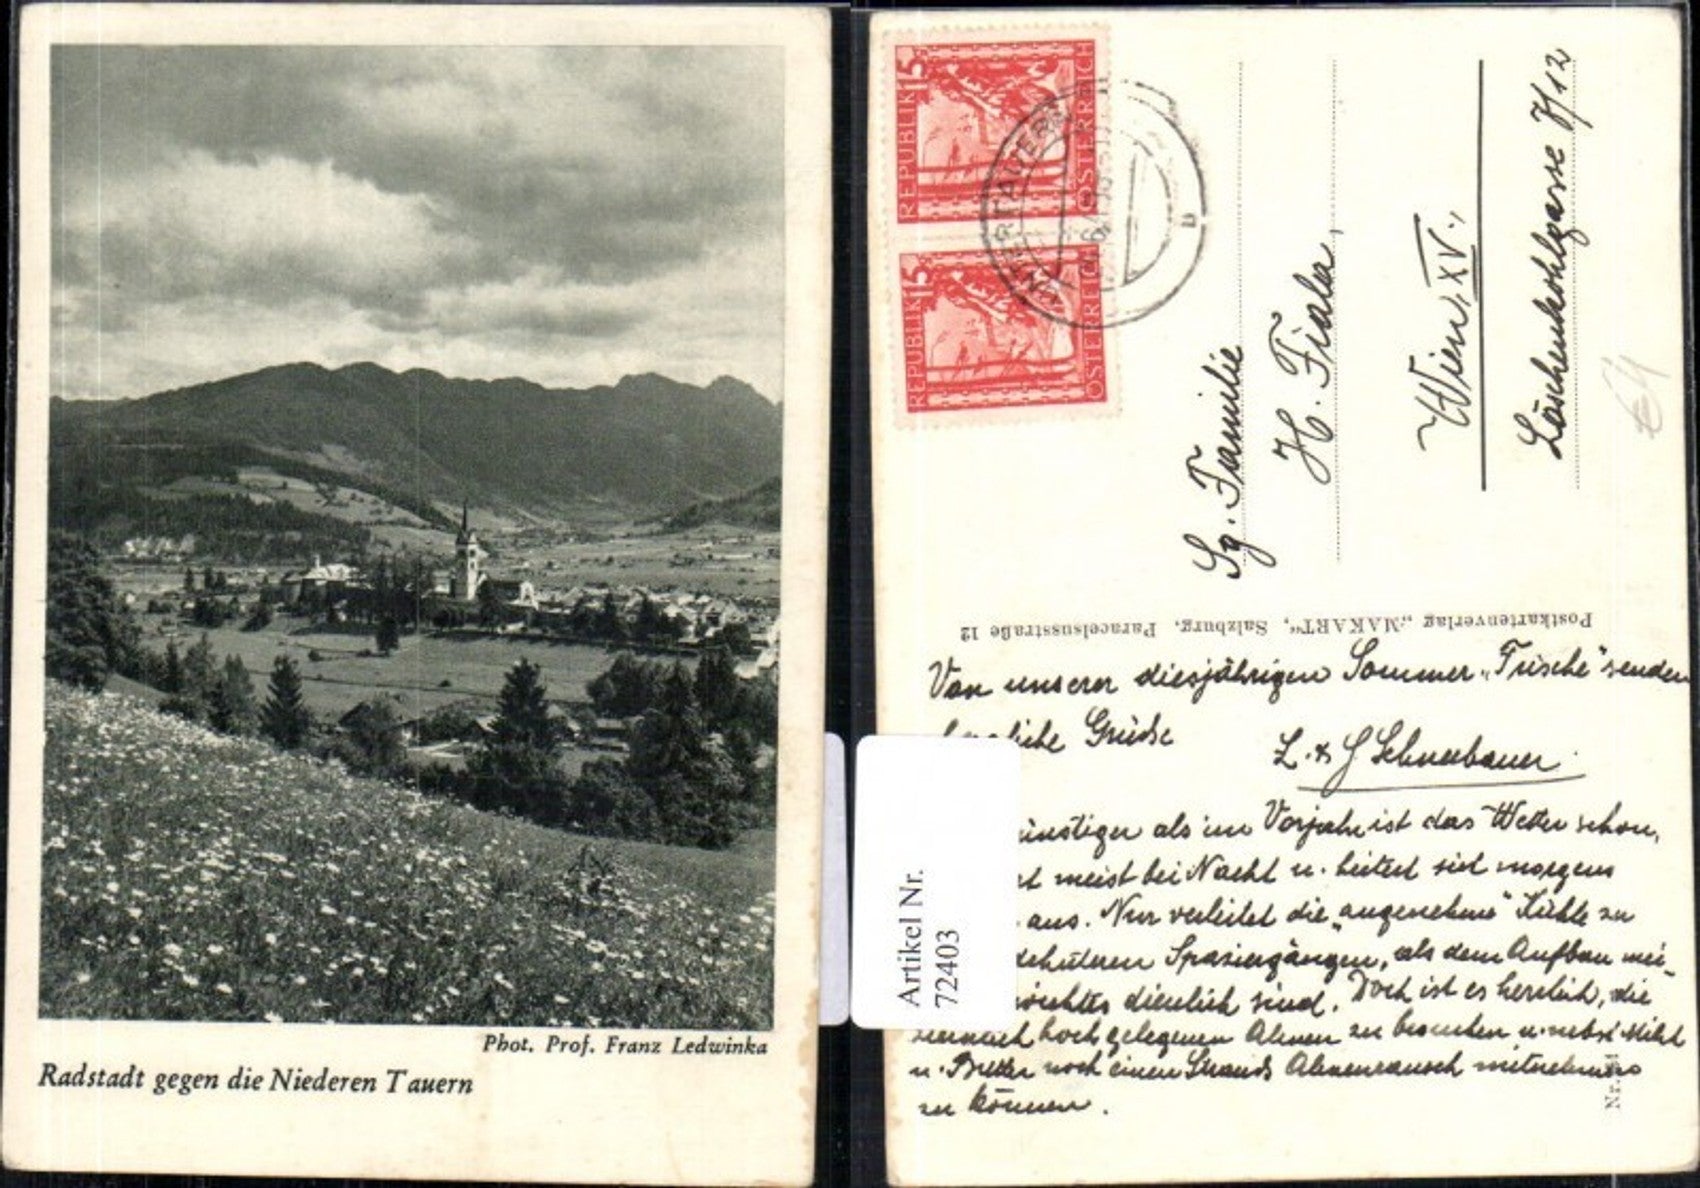 Phot. Prof. Franz Ledwinka
Radstadt gegen die Niederen Tauern
REPUBLIK 15
ÖSTERREICH
REPUBLIK 15
ÖSTERREICH
UNTERTAUERN
Sg. Familie
H. Fiala,
Wien, XV.,
Löschenkohlgasse 7/12
Postkartenverlag „MAKART“, Salzburg, Paracelsusstraße 12
Von unserer diesjährigen Sommer „Frische“ senden
Grüße
L. & G Schneebauer.
ünstiger als im Vorjahr ist das Wetter schon,
meist bei Nacht u. heitert sich morgens
aus. Nur verleitet die „angenehme“ Kühle zu
Spaziergängen, als dem Aufbau mei-
dienlich sind. Doch ist es herrlich, die
hoch gelegenen Almen zu besuchen u. nebst Milch
u. Butter noch einen Strauß Almenrausch mitnehmen
zu können.
Artikel Nr.
72403
Nr.